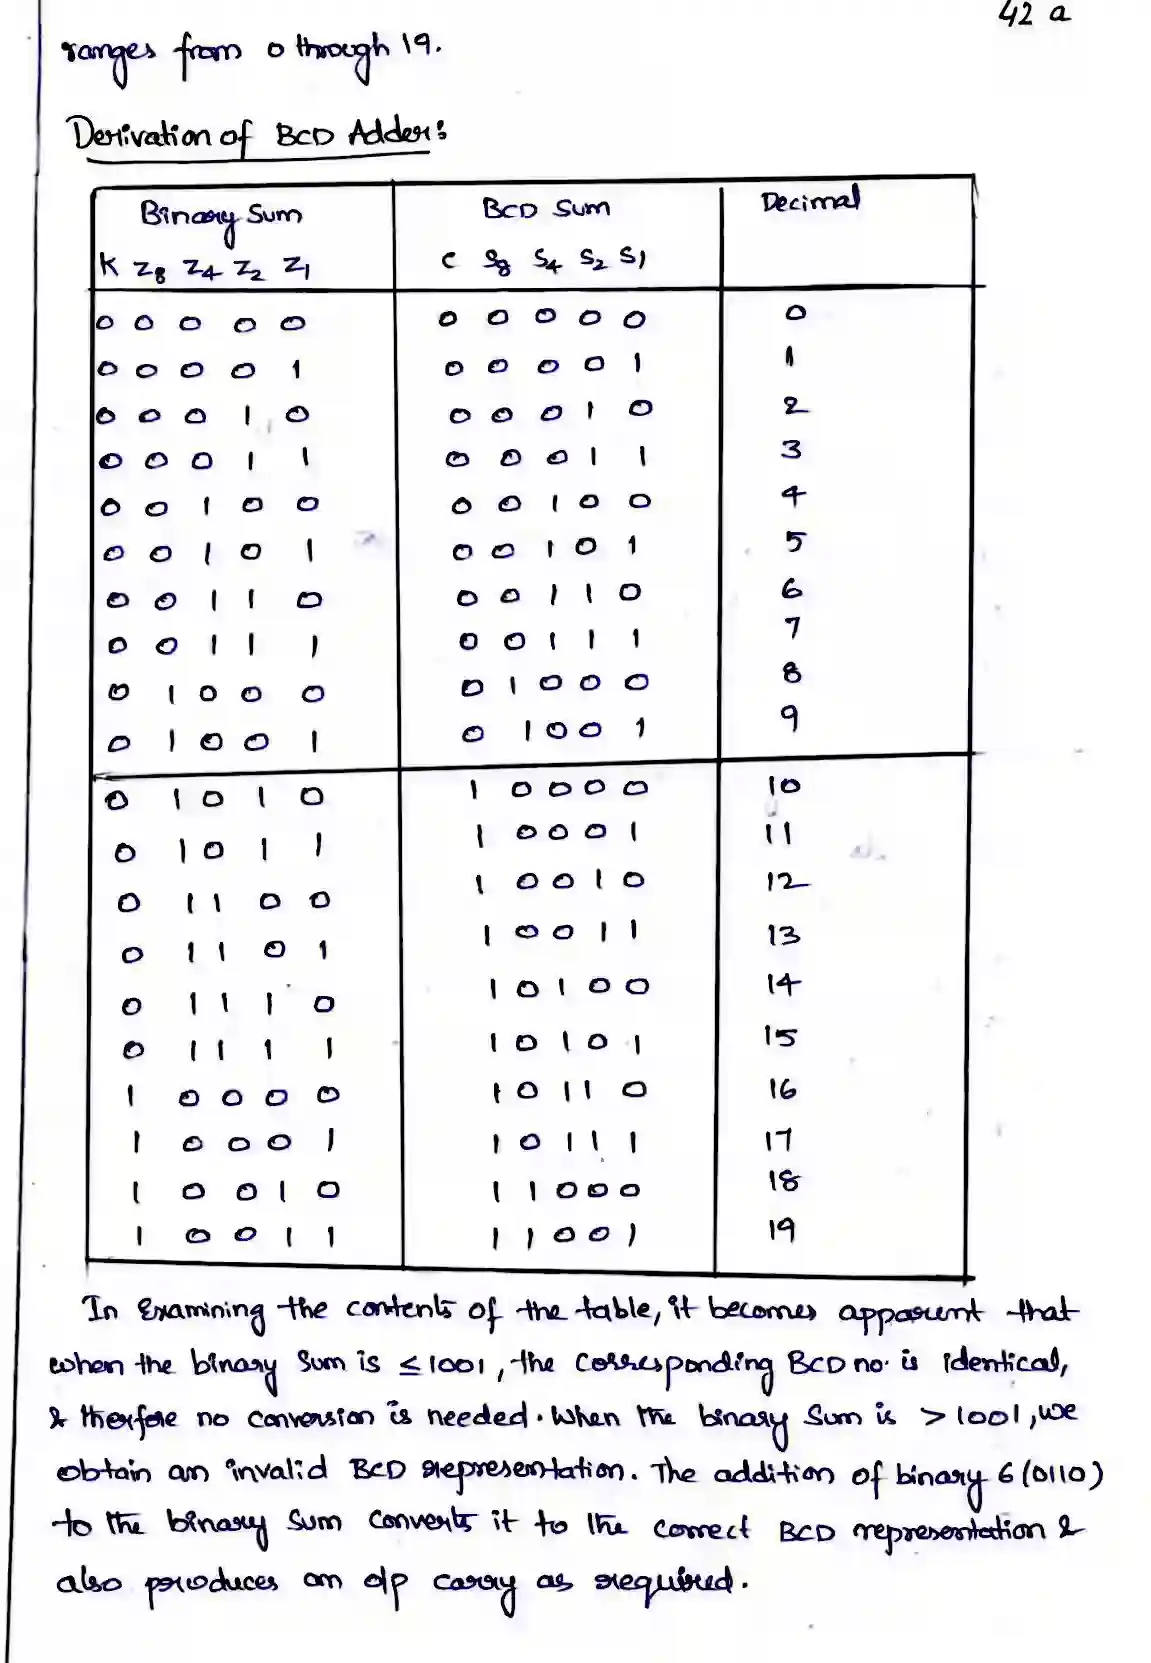 42 a
ranges from 0 through 19.
Derivation of BCD Adder:
Binary Sum BCD Sum Decimal
K Z8 Z4 Z2 Z1 C S8 S4 S2 S1
0 0 0 0 0 0 0 0 0 0 0
0 0 0 0 1 0 0 0 0 1 1
0 0 0 1 0 0 0 0 1 0 2
0 0 0 1 1 0 0 0 1 1 3
0 0 1 0 0 0 0 1 0 0 4
0 0 1 0 1 0 0 1 0 1 5
0 0 1 1 0 0 0 1 1 0 6
0 0 1 1 1 0 0 1 1 1 7
0 1 0 0 0 0 1 0 0 0 8
0 1 0 0 1 0 1 0 0 1 9
0 1 0 1 0 1 0 0 0 0 10
0 1 0 1 1 1 0 0 0 1 11
0 1 1 0 0 1 0 0 1 0 12
0 1 1 0 1 1 0 0 1 1 13
0 1 1 1 0 1 0 1 0 0 14
0 1 1 1 1 1 0 1 0 1 15
1 0 0 0 0 1 0 1 1 0 16
1 0 0 0 1 1 0 1 1 1 17
1 0 0 1 0 1 1 0 0 0 18
1 0 0 1 1 1 1 0 0 1 19
In Examining the contents of the table, it becomes apparent that
when the binary Sum is ≤ 1001, the corresponding BCD no. is identical,
& therfore no conversion is needed. When the binary Sum is > 1001, we
obtain an invalid BCD representation. The addition of binary 6 (0110)
to the binary Sum converts it to the correct BCD representation &
also produces an o/p carry as required.